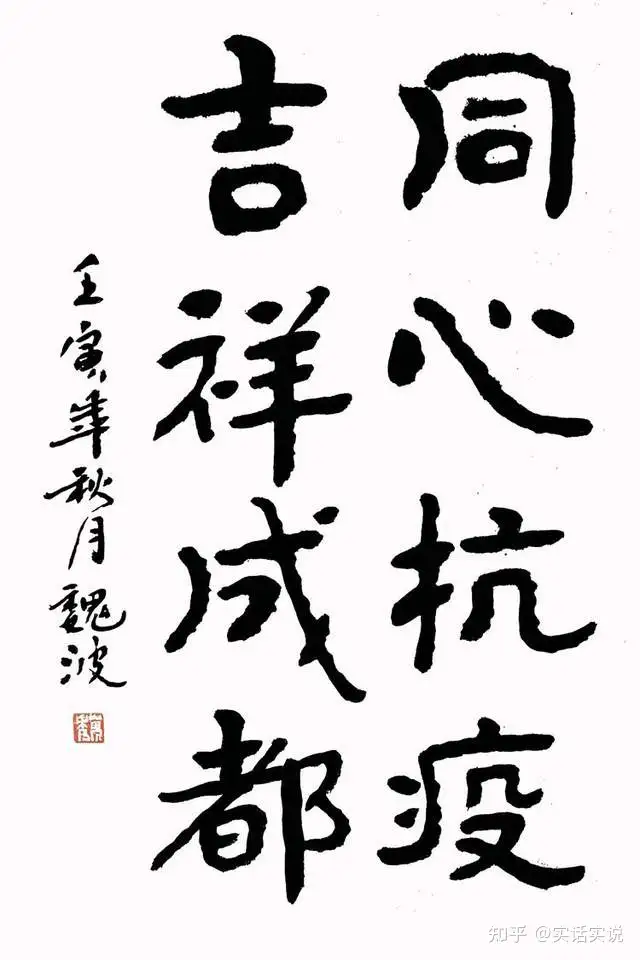 同心抗疫
吉祥成都
壬寅年秋月魏波
知乎 @实话实说